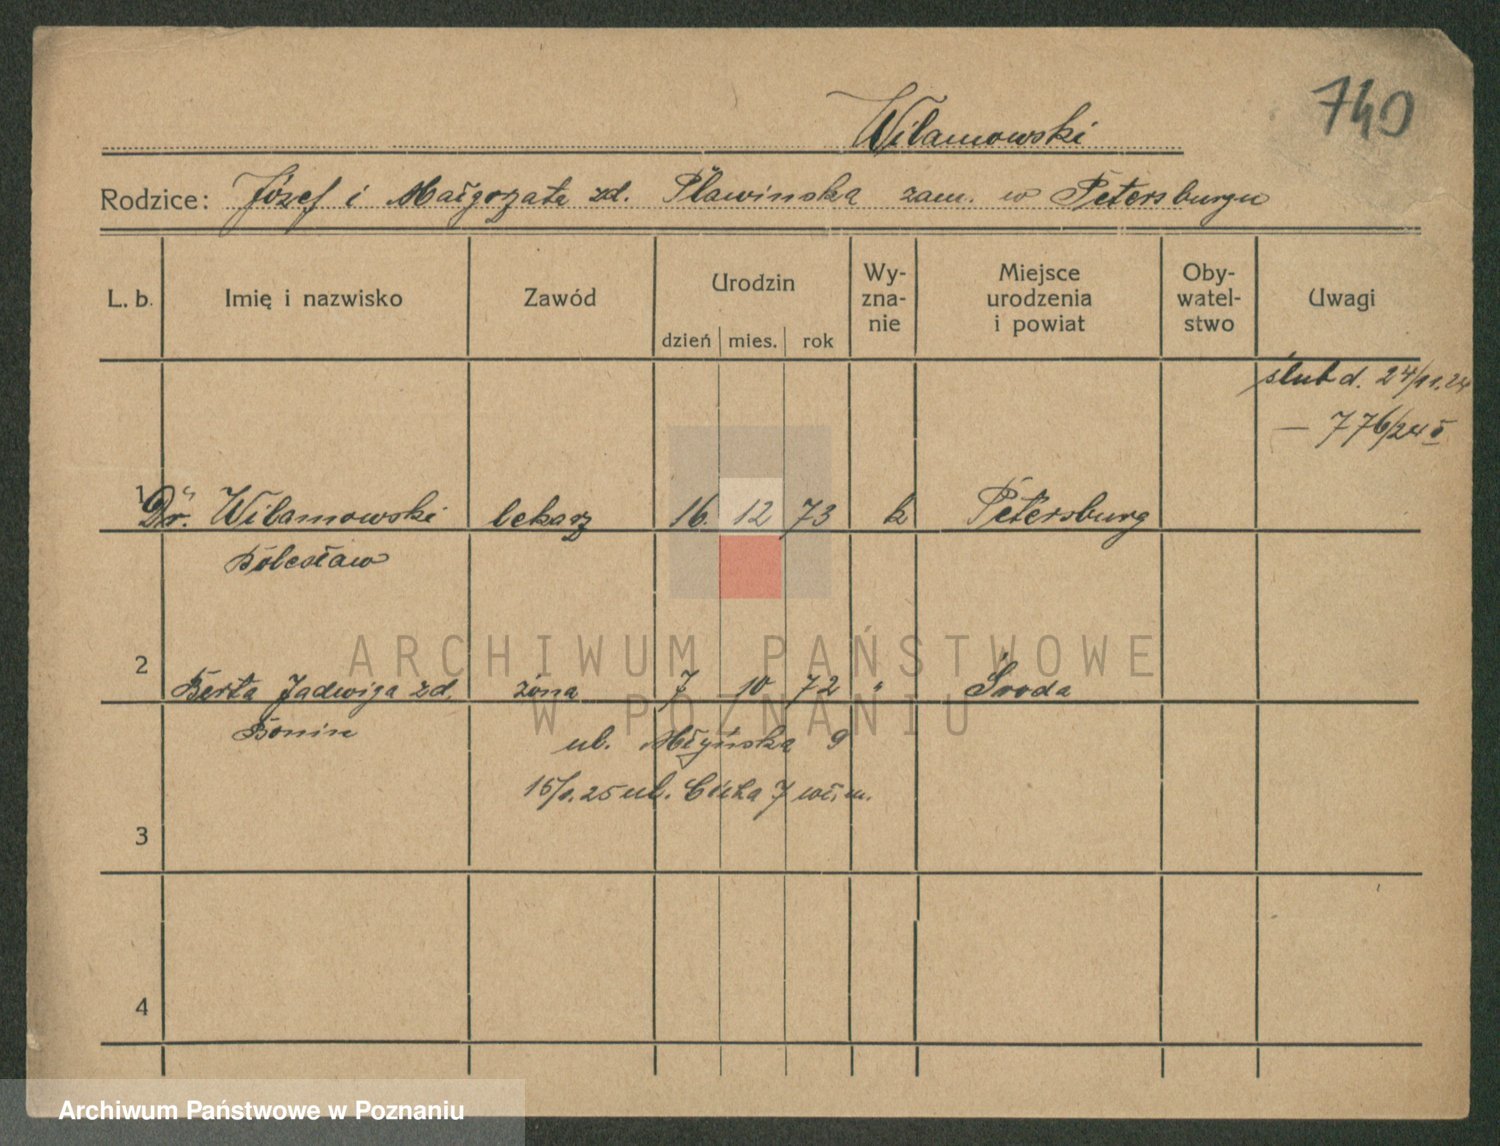 740
Wilamowski
Rodzice: Józef i Małgorzata zd. Pławińska zam. w Petersburgu
L. b. Imię i nazwisko Zawód Urodzin dzień mies. rok Wy-zna-nie Miejsce urodzenia i powiat Oby-watel-stwo Uwagi
ślub d. 24/11.24
— 776/24
1 Dr. Wilamowski lekarz 16. 12 73 k Petersburg
Bolesław
ARCHIWUM PAŃSTWOWE
2 Berta Jadwiga zd. żona 7 10 72 " Środa
W POZNANIU
Bonin
ul. Młyńska 9
15/1.25 ul. Cicha 7 wł. m.
3
4
Archiwum Państwowe w Poznaniu